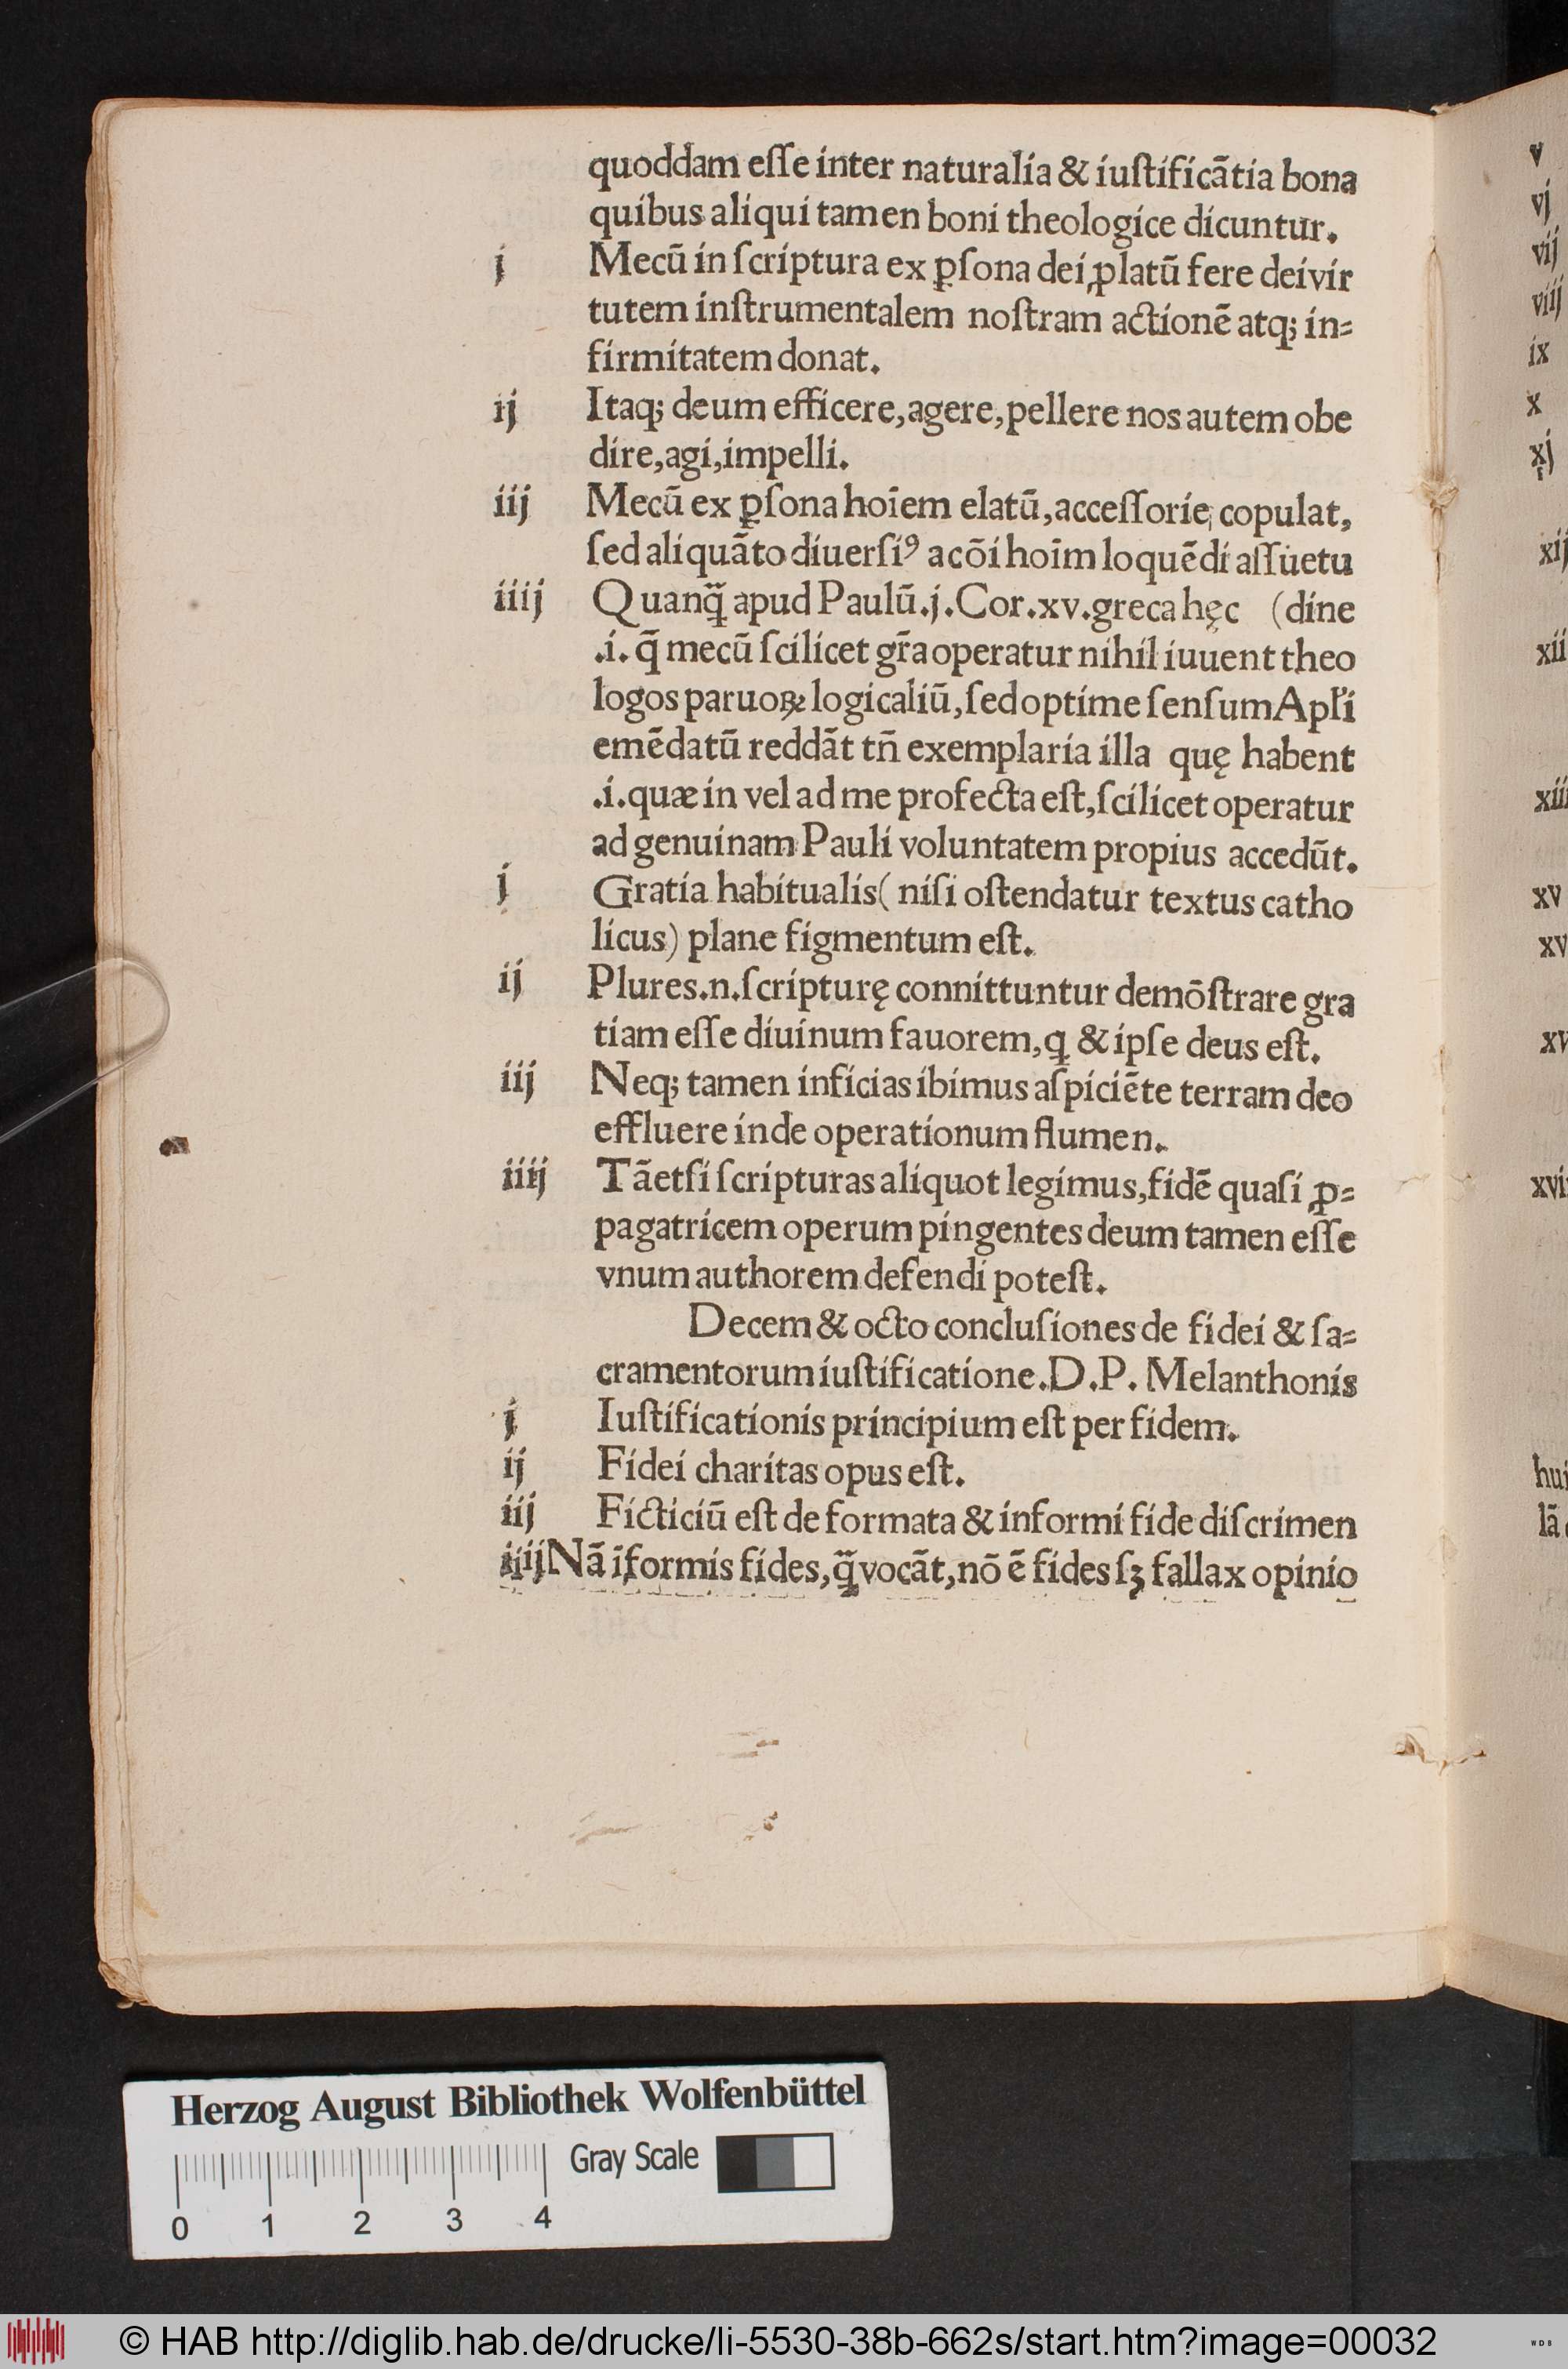 quoddam eſſe inter naturalia & iuſtificãtia bona
quibus aliqui tamen boni theologice dicuntur.
j Mecũ in ſcriptura ex ꝑſona dei ꝓlatũ fere dei vir
tutem inſtrumentalem noſtram actionẽ atqꝫ in⸗
firmitatem donat.
ij Itaqꝫ deum efficere, agere, pellere nos autem obe
dire, agi, impelli.
iij Mecũ ex ꝑſona hoĩem elatũ, acceſſorie copulat,
ſed aliquãto diuerſiꝰ a cõi hoĩm loquẽdi aſſuetu
iiij Quanq̃ apud Paulũ .j. Cor. xv. greca hęc (dine
.i. q̃ mecũ ſcilicet gr̃a operatur nihil iuuent theo
logos paruoꝝ logicaliũ, ſed optime ſenſum Apl'i
emẽdatũ reddãt tñ exemplaria illa quę habent
.i. quæ in vel ad me profecta eſt, ſcilicet operatur
ad genuinam Pauli voluntatem propius accedũt.
j Gratia habitualis ( niſi oſtendatur textus catho
licus) plane figmentum eſt.
ij Plures .n. ſcripturę connittuntur demõſtrare gra
tiam eſſe diuinum fauorem, ꝙ & ipſe deus eſt.
iij Neqꝫ tamen inficias ibimus aſpiciẽte terram deo
effluere inde operationum flumen.
iiij Tãetſi ſcripturas aliquot legimus, fidẽ quaſi ꝓ⸗
pagatricem operum pingentes deum tamen eſſe
vnum authorem defendi poteſt.
Decem & octo concluſiones de fidei & ſa⸗
cramentorum iuſtificatione. D. P. Melanthonis
j Iuſtificationis principium eſt per fidem.
ij Fidei charitas opus eſt.
iij Ficticiũ eſt de formata & informi fide diſcrimen
iiij Nã ĩformis fides, q̃ vocãt, nõ ẽ fides ſꝫ fallax opinio
v
vj
vij
viij
ix
x
xj
xij
xii
xiii
xv
xv
xv
xvi
hui
lã
Herzog August Bibliothek Wolfenbüttel
Gray Scale
0 1 2 3 4
© HAB http://diglib.hab.de/drucke/li-5530-38b-662s/start.htm?image=00032
WDB